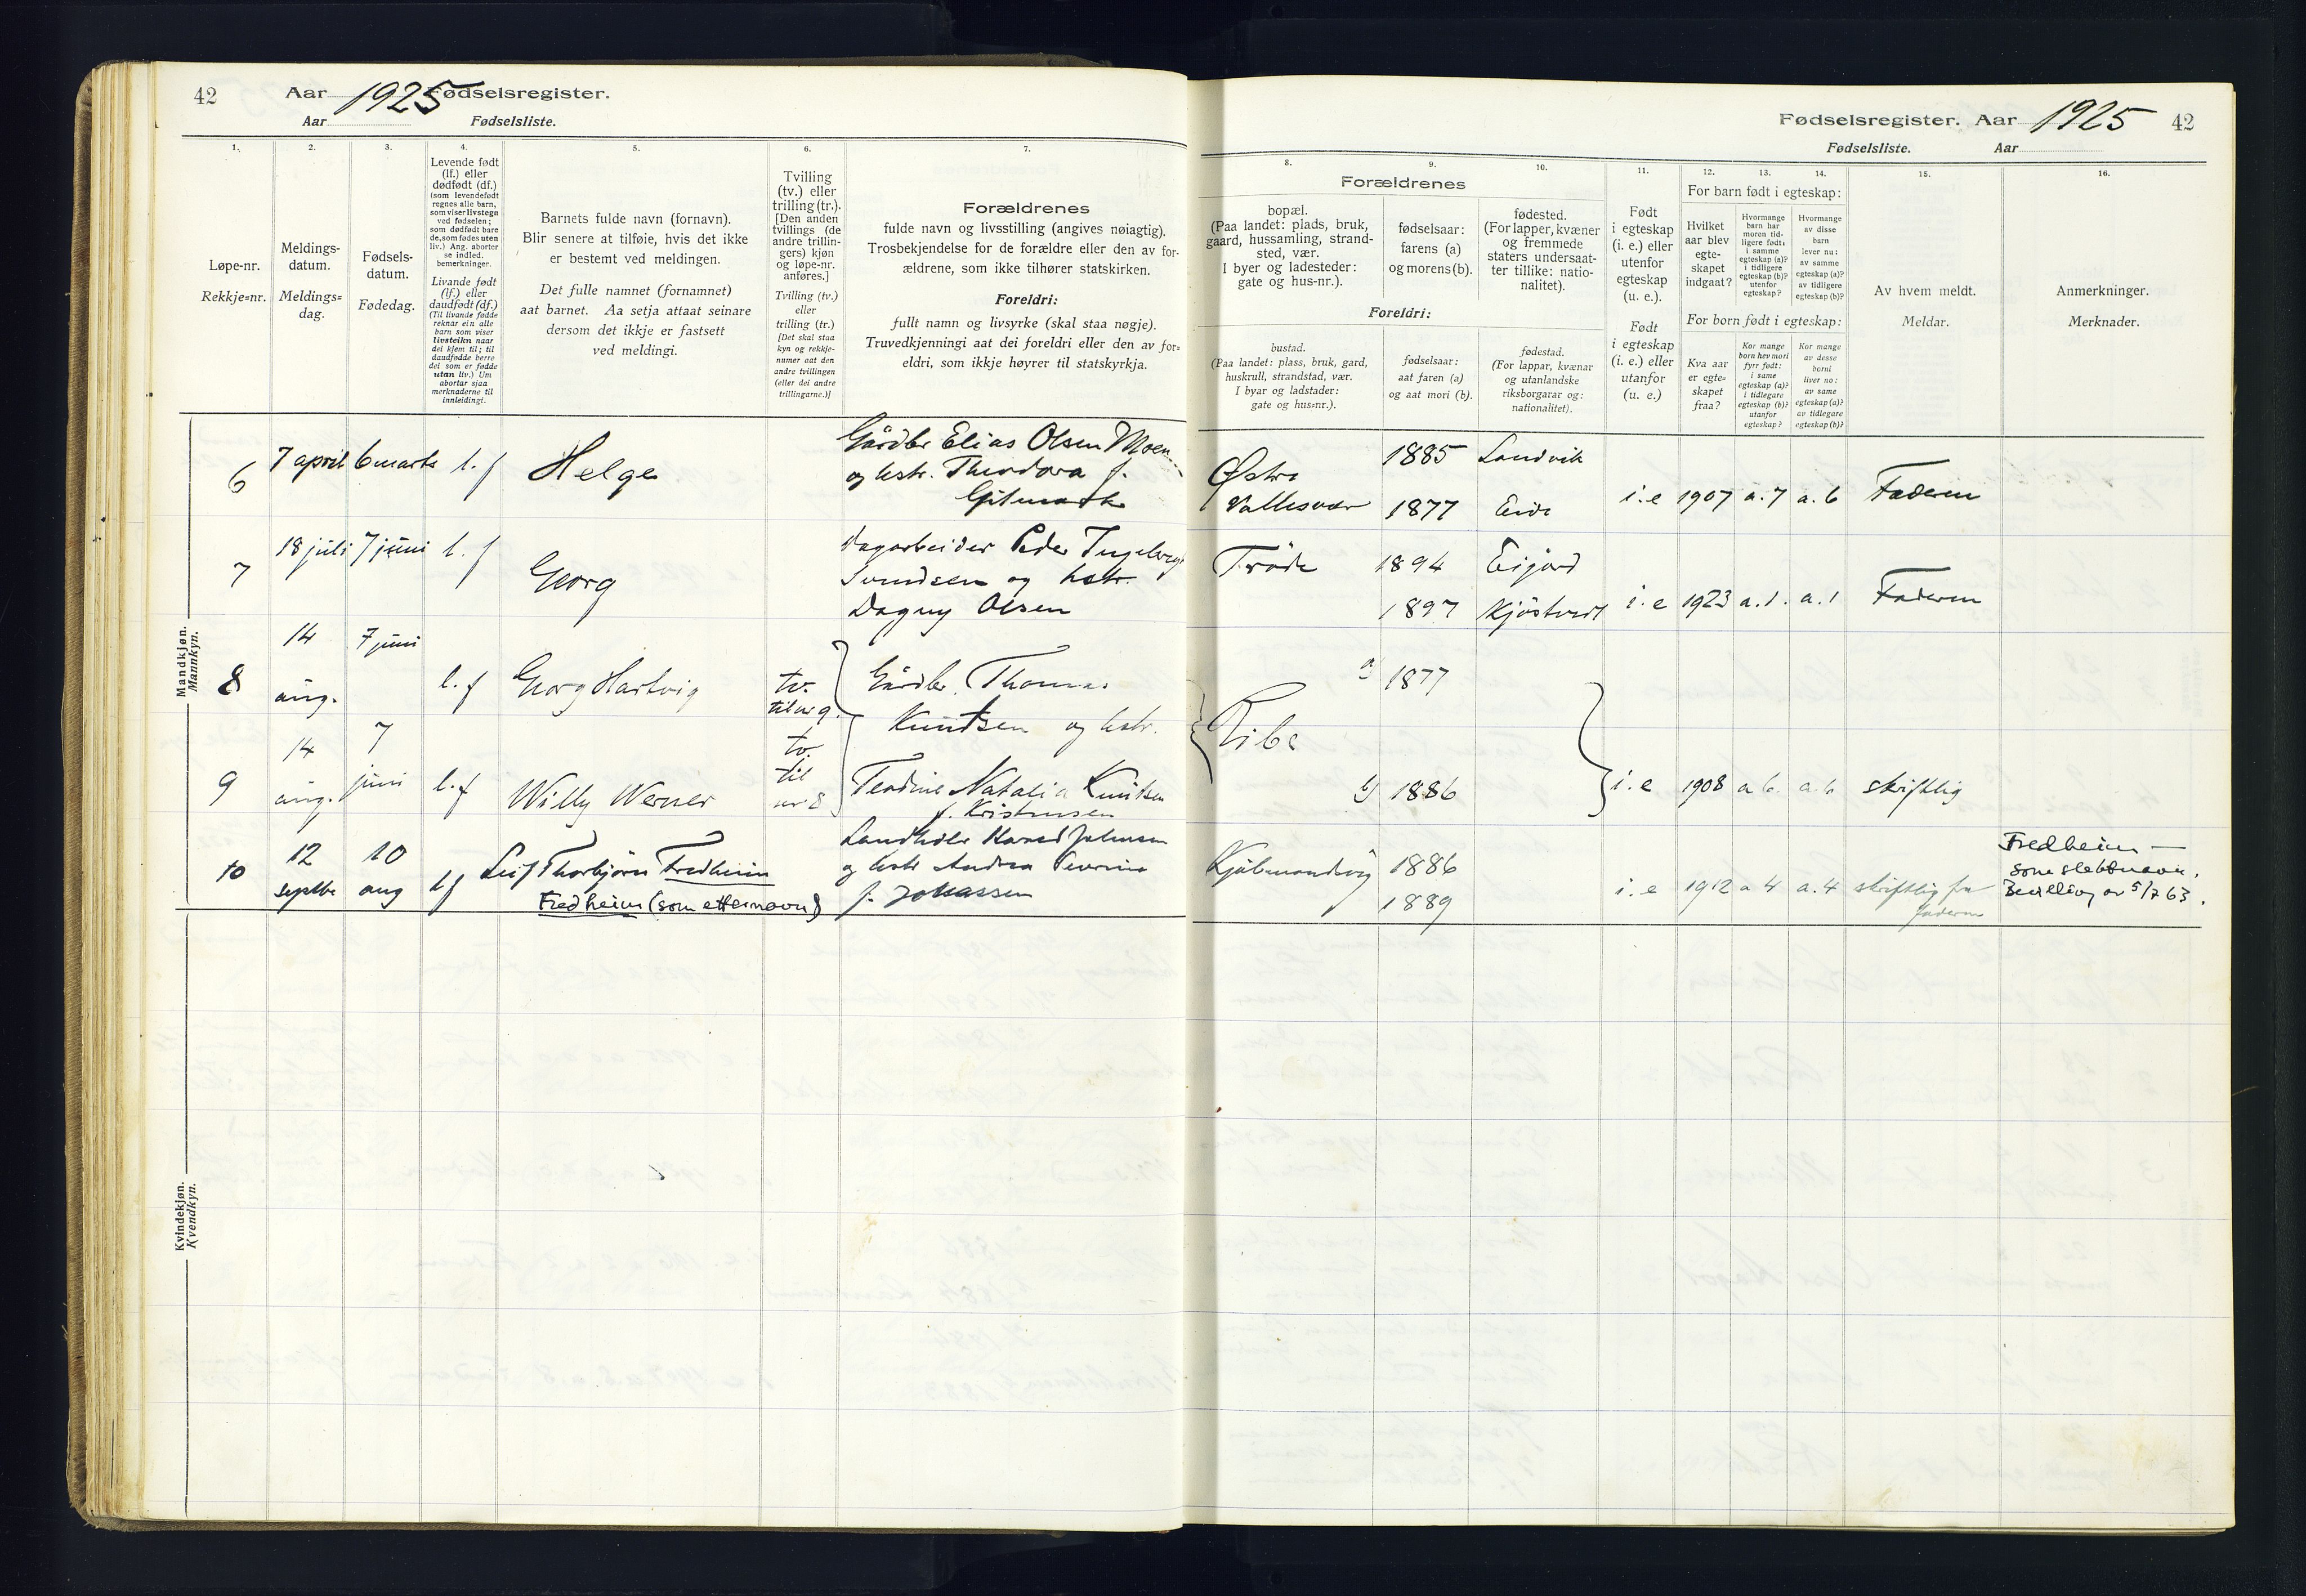 42 Aar 1925 Fødselsregister.
Aar Fødselsliste.
1. 2. 3. 4. 5. 6. 7.
Løpe-nr.
Rekkje=nr.
Meldings-
datum.
Meldings=
dag.
Fødsels-
datum.
Fødedag.
Levende født
(lf.) eller
dødfødt (df.)
(som levendefødt
regnes alle barn,
som viser livstegn
ved fødselen;
som dødfødt bare
de, som fødes uten
liv.) Ang. aborter
se indled.
bemerkninger.
Livande født
(lf.) eller
daudfødt (df.)
(Til livande fødde
reknar ein alle
barn som viser
livsteikn naar
dei kjem til; til
daudfødde berre
dei som er fødde
utan liv.) Um
abortar sjaa
merknaderne til
innleidingi.
Barnets fulde navn (fornavn).
Blir senere at tilføie, hvis det ikke
er bestemt ved meldingen.
Det fulle namnet (fornamnet)
aat barnet. Aa setja attaat seinare
dersom det ikkje er fastsett
ved meldingi.
Tvilling
(tv.) eller
trilling (tr.).
[Den anden
tvillings (de
andre trillin-
gers) kjøn
og løpe-nr.
anføres.]
Tvilling (tv.)
eller
trilling (tr.)
[Det skal staa
kyn og rekkje-
numer aat den
andre tvillingen
(eller dei andre
trillingarne.)]
Forældrenes
fulde navn og livsstilling (angives nøiagtig).
Trosbekjendelse for de forældre eller den av for-
ældrene, som ikke tilhører statskirken.
Foreldri:
fullt namn og livsyrke (skal staa nøgje).
Truvedkjenningi aat dei foreldri eller den av for=
eldri, som ikkje høyrer til statskyrkja.
Mandkjøn.
Mannkyn.
6 7 april 6 marts l. f Helge
Gårdbr Elias Olsen Moen
og hstr. Theodora f.
Gitmark
7 18 juli 7 juni l. f Georg
Dagarbeider Peder Ingebregt
Svendsen og hstr.
Dagny Olsen
8 14 aug. 7 juni l. f Georg Hartvig tv. til nr 9.
Gårdbr. Thomas
Knudtsen og hstr.
9 14 aug. 7 juni l. f Willy Werner tv. til nr 8
Teodine Natalia Knutsen
f. Kristensen
10 12 septbr 10 aug lf Leif Thorbjørn Fredheim
Fredheim (som etternavn)
og hstr Andrea
f. Johassen
Kvindekjøn.
Kvendkyn.
Fødselsregister. Aar 1925 42
Fødselsliste. Aar
8. 9. 10. 11. 12. 13. 14. 15. 16.
Forældrenes
bopæl.
(Paa landet: plads, bruk,
gaard, hussamling, strand-
sted, vær.
I byer og ladesteder:
gate og hus-nr.).
fødselsaar:
farens (a)
og morens (b).
fødested.
(For lapper, kvæner
og fremmede
staters undersaat-
ter tillike: natio-
nalitet).
Foreldri:
bustad.
(Paa landet: plass, bruk, gard,
huskrull, strandstad, vær.
I byar og ladstader:
gate og hus=nr.).
fødselsaar:
aat faren (a)
og aat mori (b).
fødestad.
(For lappar, kvænar
og utanlandske
riksborgarar og:
nationalitet).
Født
i egteskap
(i. e.) eller
utenfor
egteskap
(u. e.).
Født
i egteskap
(i. e.) eller
utanfor
(u. e.)
For barn født i egteskap:
Hvilket
aar blev
egte-
skapet
indgaat?
Hvormange
barn har
moren tid-
ligere født:
i samme
egteskap (a)?
i tidligere
egteskap (b)?
utenfor
egteskap?
Hvormange
av disse
barn
lever nu:
av samme
egteskap (a)?
av tidligere
egteskap (b)?
For born født i egteskap:
Kva aar
er egte=
skapet
fraa?
Kor mange
born hev mori
fyrr født:
i same
egteskap (a)?
i tidlegare
egteskap (b)?
utanfor
egteskap?
Kor mange
av desse
borni
liver no:
av same
egteskap (a)?
av tidlegare
egteskap (b)?
Av hvem meldt.
Meldar.
Anmerkninger.
Merknader.
Østre
Vallesvær
1885 Landvik
1877 Eide
i. e 1907 a. 7 a. 6 Faderen
Trøde 1894
1897
i. e 1923 a. 1. a. 1 Faderen
a) 1877
Ribe
b) 1886 i. e 1908 a 6. a. 6 skriftlig
1886
1889
i. e 1912 a 4 a. 4 skriftlig fra
faderen
Fredheim —
som slektsnavn.
Bevilling av 5/7 63.